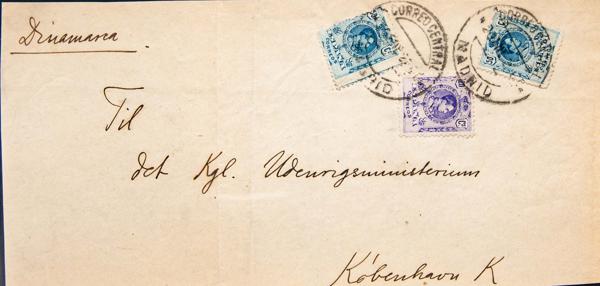 Dinamarca
CORREO CENTRAL
MADRID
CORREO CENTRAL
MADRID
Til
det Kgl. Udenrigsministerium
København K